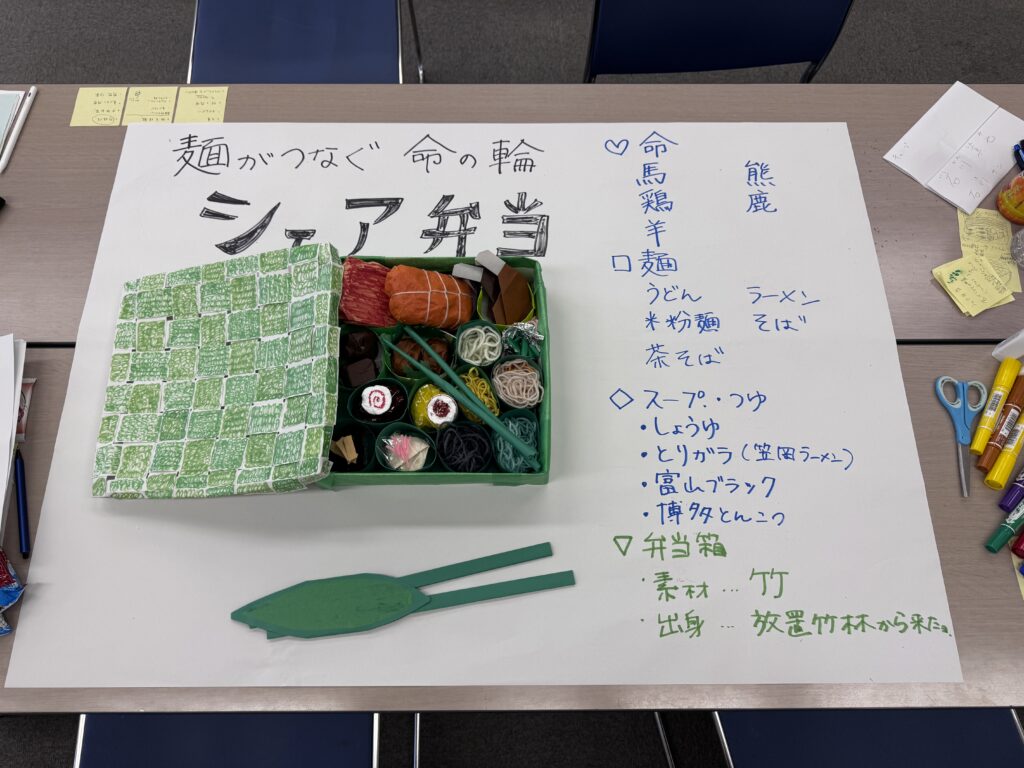 麺がつなぐ 命の輪
シェア弁当
♡ 命
馬 熊
鶏 鹿
羊
□ 麺
うどん ラーメン
米粉麺 そば
茶そば
◇ スープ・つゆ
・しょうゆ
・とりガラ(笠岡ラーメン)
・富山ブラック
・博多とんこつ
▽ 弁当箱
・素材…竹
・出身…放置竹林から来たョ.